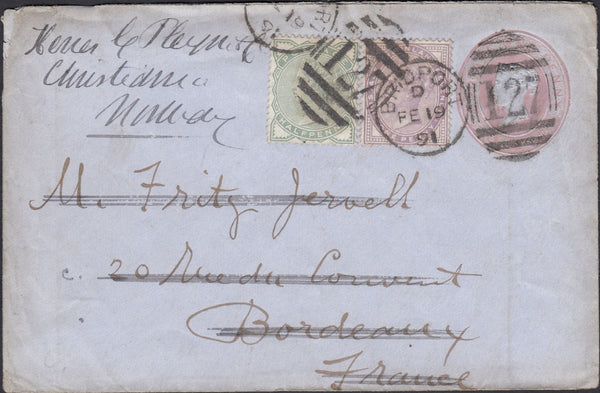 Christiania
Norway
HALFPENNY
BRIDPORT
D
FE 19
81
12
M. Fritz Jervell
c. 20 Rue du Couvent
Bordeaux
France